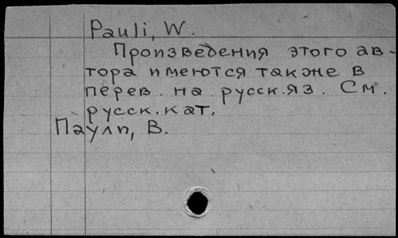 Pauli, W.
Произведения этого ав-
тора имеются также в
перев. на русск.яз. См.
русск.кат.
Паули, В.